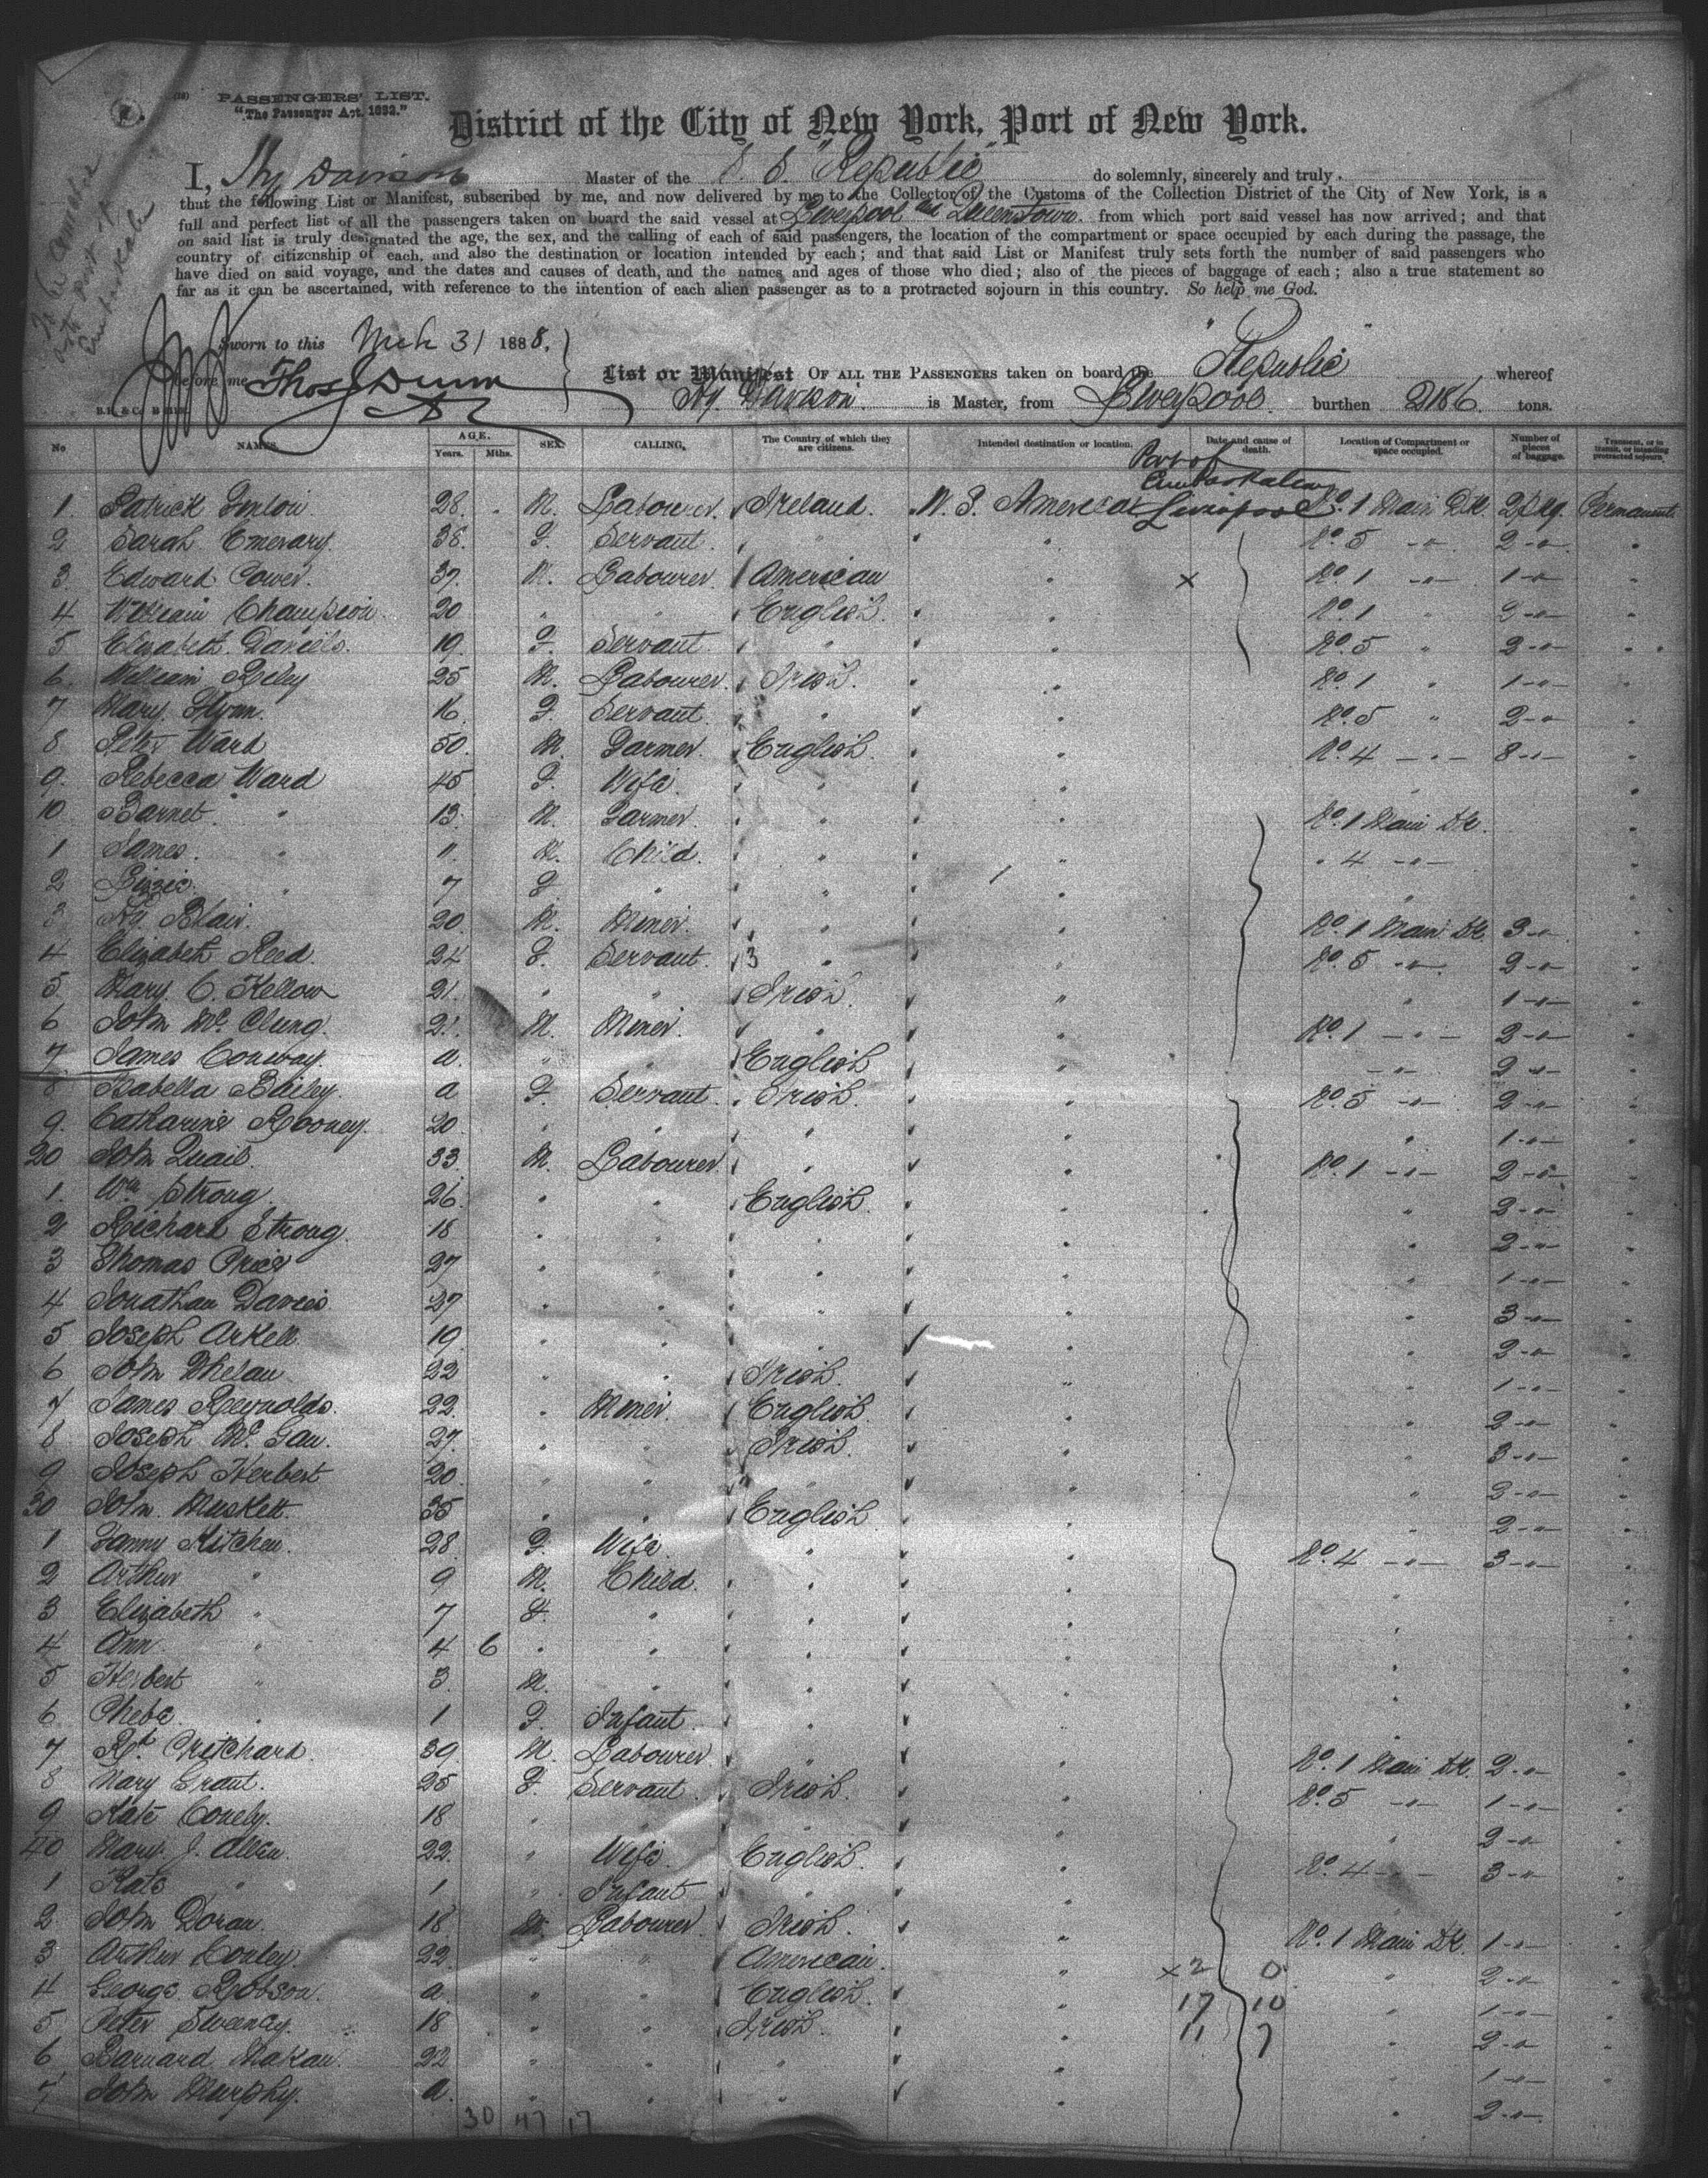 PASSENGERS' LIST.
"The Passenger Act, 1882."
District of the City of New York, Port of New York.
I, Hy Davison Master of the S. S. "Republic" do solemnly, sincerely and truly
that the following List or Manifest, subscribed by me, and now delivered by me to the Collector of the Customs of the Collection District of the City of New York, is a
full and perfect list of all the passengers taken on board the said vessel at Liverpool and Queenstown. from which port said vessel has now arrived; and that
on said list is truly designated the age, the sex, and the calling of each of said passengers, the location of the compartment or space occupied by each during the passage, the
country of citizenship of each, and also the destination or location intended by each; and that said List or Manifest truly sets forth the number of said passengers who
have died on said voyage, and the dates and causes of death, and the names and ages of those who died; also of the pieces of baggage of each; also a true statement so
far as it can be ascertained, with reference to the intention of each alien passenger as to a protracted sojourn in this country. So help me God.
Sworn to this Mch 31 1888,
before me Thos J Dunn
List or Manifest OF ALL THE PASSENGERS taken on board the "Republic" whereof
Hy. Davison is Master, from Liverpool burthen 2186 tons.
No NAMES. AGE. Years. Mths. SEX. CALLING. The Country of which they are citizens. Intended destination or location. Date and cause of death. Location of Compartment or space occupied. Number of pieces of baggage. Transient, or in transit, or intending protracted sojourn.
Port of
Embarkation
1. Patrick 28. M. Labourer. Ireland. N. S. America Liverpool No. 1 Main Dk. 2 pkg. Permanent.
2 Sarah Emerary. 38. F. Servant. " " No. 5 -"- 2 -"-
3. Edward Power. 37. M. Labourer American " x No. 1 -"- 1 -"-
4 William Champion. 20 " " English. " No. 1 " 2 -"-
5 Elizabeth Daniels. 19. F. Servant " " No. 5 " 2 -"-
6. William Riley 25 M. Labourer. Irish. " No. 1 " 1 -"-
7 Mary Flynn. 16. F. Servant. " " No. 5 " 2 -"-
8 Peter Ward 50. M. Farmer. English. " No. 4 -"- 8 -"-
9. Rebecca Ward 45 F. Wife. " "
10 Barnet. " 13. M. Farmer. " " No. 1 Main Dk.
1 James. " 11. M. Child. " " " 4 -"-
2 Lizzie. " 7 F " " "
3 Hy. Blair. 20. M. Miner. " " No. 1 Main Dk. 3 -"-
4 Elizabeth Reed. 24 F. Servant. 3 " " No. 5 -"- 2 -"-
5. Mary C. Kellow 21. " " Irish. " " 1 -"-
6 John McClung. 21. M. Miner. " " No. 1 -"- 2 -"-
7. James Conway. a. " " English " -"- 2 -"-
8 Isabella Bailey. a F. Servant. Irish. " No. 5 -"- 2 -"-
9. Catharine Rooney. 20. " " " " " 1 -"-
20 John Quail. 33. M. Labourer. " " No. 1 -"- 2 -"-
1. Wm Strong 26. " " English. " " 2 -"-
2 Richard Strong. 18 " " " " " 2 -"-
3 Thomas Price 27 " " " " " 1 -"-
4 Jonathan Davies 27 " " " " " 3 -"-
5 Joseph Arkell. 19. " " " " " 2 -"-
6 John Whelan. 22 " " Irish. " " 1 -"-
7 James Reynolds. 22. " Miner. English. " " 2 -"-
8 Joseph Mc Gau. 27. " " Irish. " " 3 -"-
9 Joseph Herbert 20. " " " " " 2 -"-
30 John Muskett. 35 " " English. " " 2 -"-
1 Fanny Kitchen. 28. F. Wife. " " No. 4 -"- 3 -"-
2 Arthur " 9 M. Child. " " "
3 Elizabeth " 7 F. " " " "
4 Ann " 4 6 " " " " "
5 Herbert " 3. M. " " " "
6 Pheba. " 1 F. Infant. " " "
7 Rt. Pritchard. 39. M. Labourer " " No. 1 Main Dk. 2 -"-
8 Mary Grant. 25 F. Servant. Irish. " No. 5 -"- 1 -"-
9 Kate Conely. 18 " " " " " 2 -"-
40 Mary J. Allen. 22. " Wife. English. " No. 4 -"- 3 -"-
1 Kate " 1 " Infant " "
2 John Doran. 18 M. Labourer Irish. " No. 1 Main Dk. 1 -"-
3 Arthur Conley. 22. " " American. " x 2 0 " 2 -"-
4 George Robson. a. " " English. " 17 10 " 1 -"-
5 Peter Sweeney. 18 " " Irish. " 11 7 " 2 -"-
6 Barnard Makau. 22 " " " " " 1 -"-
7 John Murphy. a. " " " " " 2 -"-
30 47 17